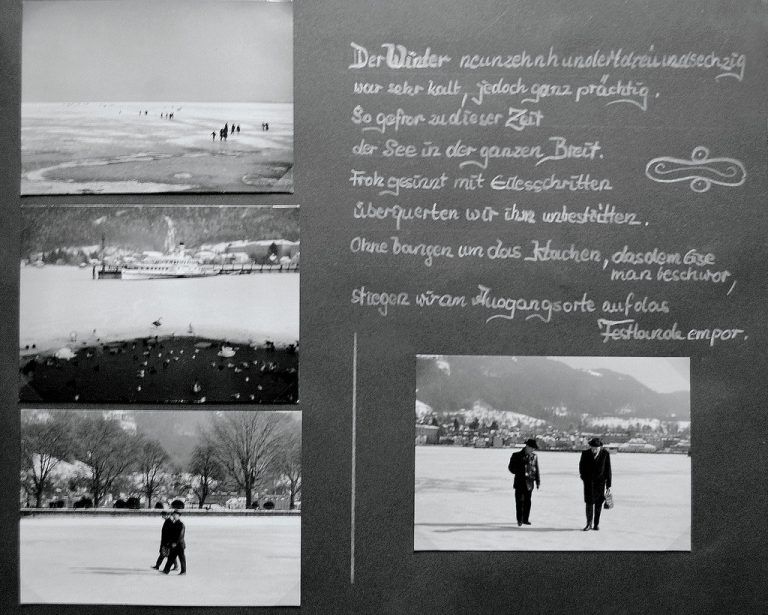 Der Winter neunzehnhundertdreiundsechzig
war sehr kalt, jedoch ganz prächtig.
So gefror zu dieser Zeit
der See in der ganzen Breit.
Froh gesinnt mit Eilesschritten
überquerten wir ihn unbestritten.
Ohne bangen um das Krachen, das dem Eise
man beschwor,
stiegen wir am Ausgangsorte auf das
Festlande empor.